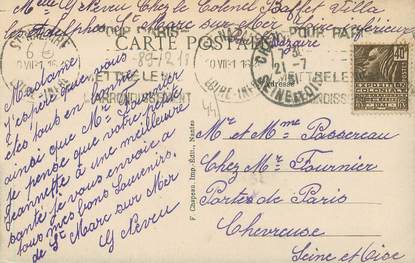 Melle G Neveu Chez le Colonel Baffet Villa
les St Marc sur Mer Loire inférieure
CARTE POSTALE
POUR PARIS
POUR PARI
ST NAZAIRE
21-7
31
Adresse
LOIRE-INF
44
40c
Madame,
J'espère que vous
êtes tous en bonne santé
ainsi que Mr Fournier
je pense que votre petite
Jeannette a une meilleure
santé. Je vous envoie a
tous mes bons souvenirs,
de St Marc sur Mer
G Neveu
F. Chapeau, Imp. Édit., Nantes
Mr et Mme Passereau
Chez Mr Fournier
Portes de Paris
Chevreuse
Seine et Oise